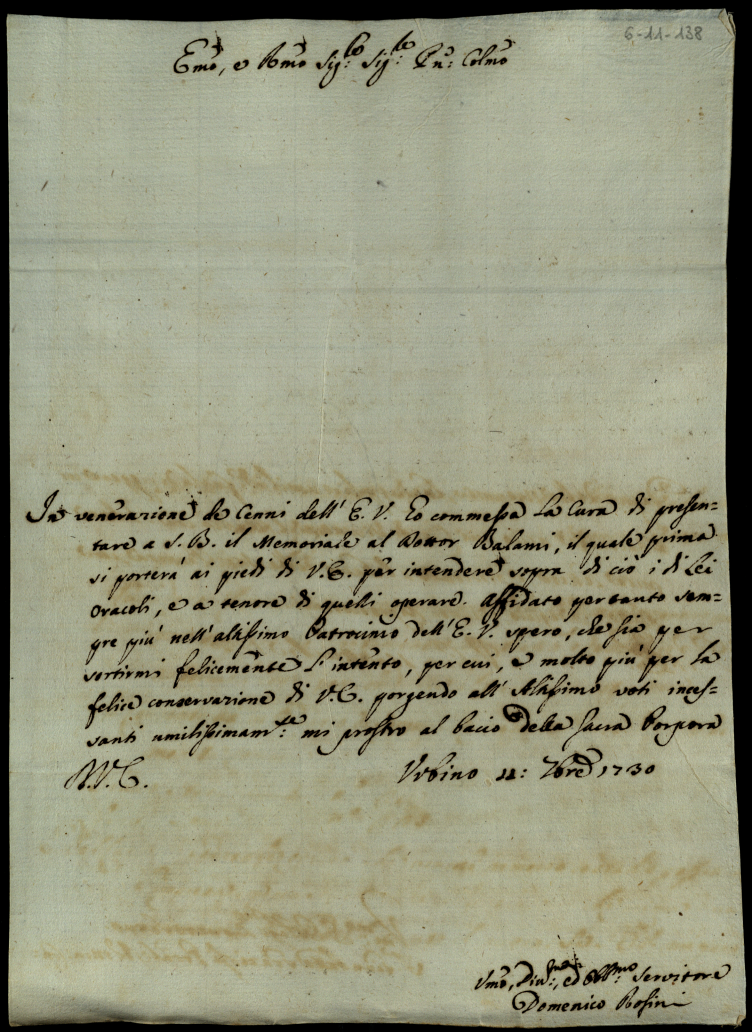 6-11-138
Emo, e Rmo Sig:re Sig:re Pn: Colmo
In venerazione de Cenni dell' E. V. ho commessa la Cura di presen-
tare a S. B. il Memoriale al Dottor Balami, il quale prima
si porterà ai piedi di V. E. per intendere sopra di ciò i di Lei
Oracoli, e a tenore di quelli operare. Affidato pertanto sem-
pre più nell' altissimo Patrocinio dell' E. V. spero, che sia per
sortirmi felicemente l' intento, per cui, e molto più per la
felice conservazione di V. E. porgendo all' Altissimo voti inces-
santi umilissimam:te mi prostro al bacio della Sacra Porpora
D. V. E. Urbino 11: 7bre 1730
Umo, Div:mo, ed Obb:mo Servitore
Domenico Rosini